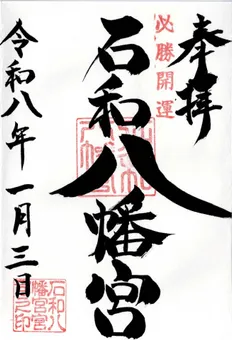 奉拝
必勝開運
石和八幡宮
令和八年一月三日
石和八
幡宮宮
之印